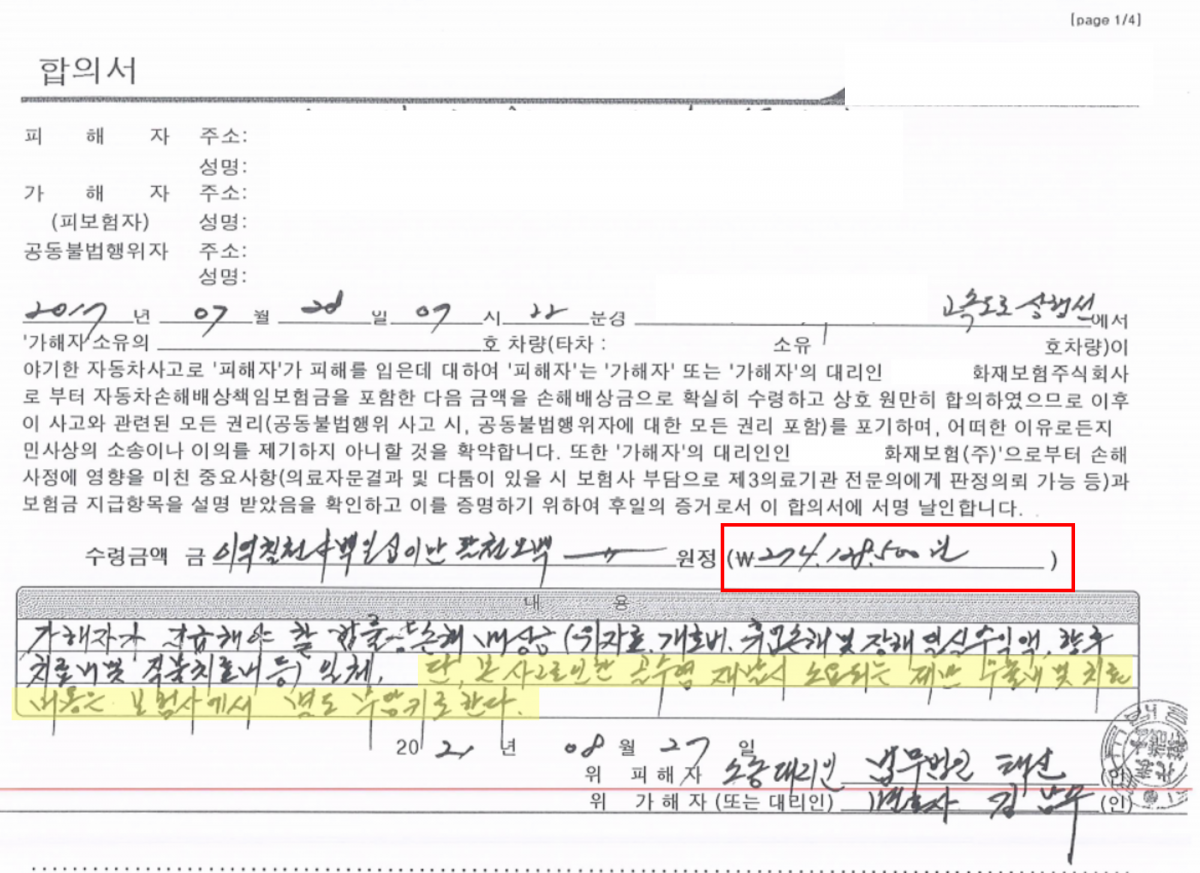 [page 1/4]
합의서
피 해 자 주소:
성명:
가 해 자 주소:
(피보험자) 성명:
공동불법행위자 주소:
성명:
2017년 07월 28일 07시 22분경 고속도로 상행선에서
'가해자'소유의 호 차량(타차 : 소유 호차량)이
야기한 자동차사고로 '피해자'가 피해를 입은데 대하여 '피해자'는 '가해자' 또는 '가해자'의 대리인 화재보험주식회사
로 부터 자동차손해배상책임보험금을 포함한 다음 금액을 손해배상금으로 확실히 수령하고 상호 원만히 합의하였으므로 이후
이 사고와 관련된 모든 권리(공동불법행위 사고 시, 공동불법행위자에 대한 모든 권리 포함)를 포기하며, 어떠한 이유로든지
민사상의 소송이나 이의를 제기하지 아니할 것을 확약합니다. 또한 '가해자'의 대리인인 화재보험(주)'으로부터 손해
사정에 영향을 미친 중요사항(의료자문결과 및 다툼이 있을 시 보험사 부담으로 제3의료기관 전문의에게 판정의뢰 가능 등)과
보험금 지급항목을 설명 받았음을 확인하고 이를 증명하기 위하여 후일의 증거로서 이 합의서에 서명 날인합니다.
수령금액 금 이억칠천사백일십이만 팔천오백 원정 (₩274,128,500원 )
내 용
가해자가 지급해야 할 법률상 손해배상금(위자료, 개호비, 휴업손해 및 장해 일실수익액, 향후
치료비 및 직불치료비 등) 일체. 단, 본 사고로 인한 골수염 재발시 소요되는 제반 수술비 및 치료
비용은 보험사에서 별도 부담키로 한다.
2021년 08월 27일
위 피해자 소송대리인 법무법인 태신 (인)
위 가해자(또는 대리인) 변호사 김남우 (인)